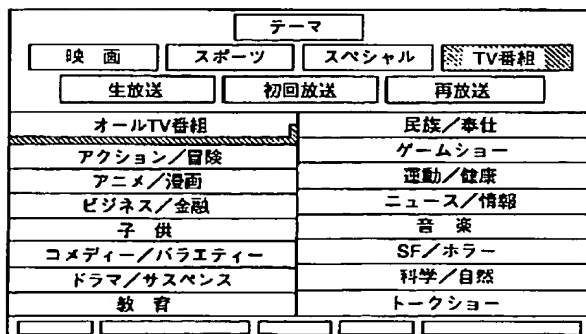 テーマ
映 画 スポーツ スペシャル TV番組
生放送 初回放送 再放送
オールTV番組
アクション/冒険
アニメ/漫画
ビジネス/金融
子 供
コメディー/バラエティー
ドラマ/サスペンス
教 育
民族/奉仕
ゲームショー
運動/健康
ニュース/情報
音 楽
SF/ホラー
科学/自然
トークショー